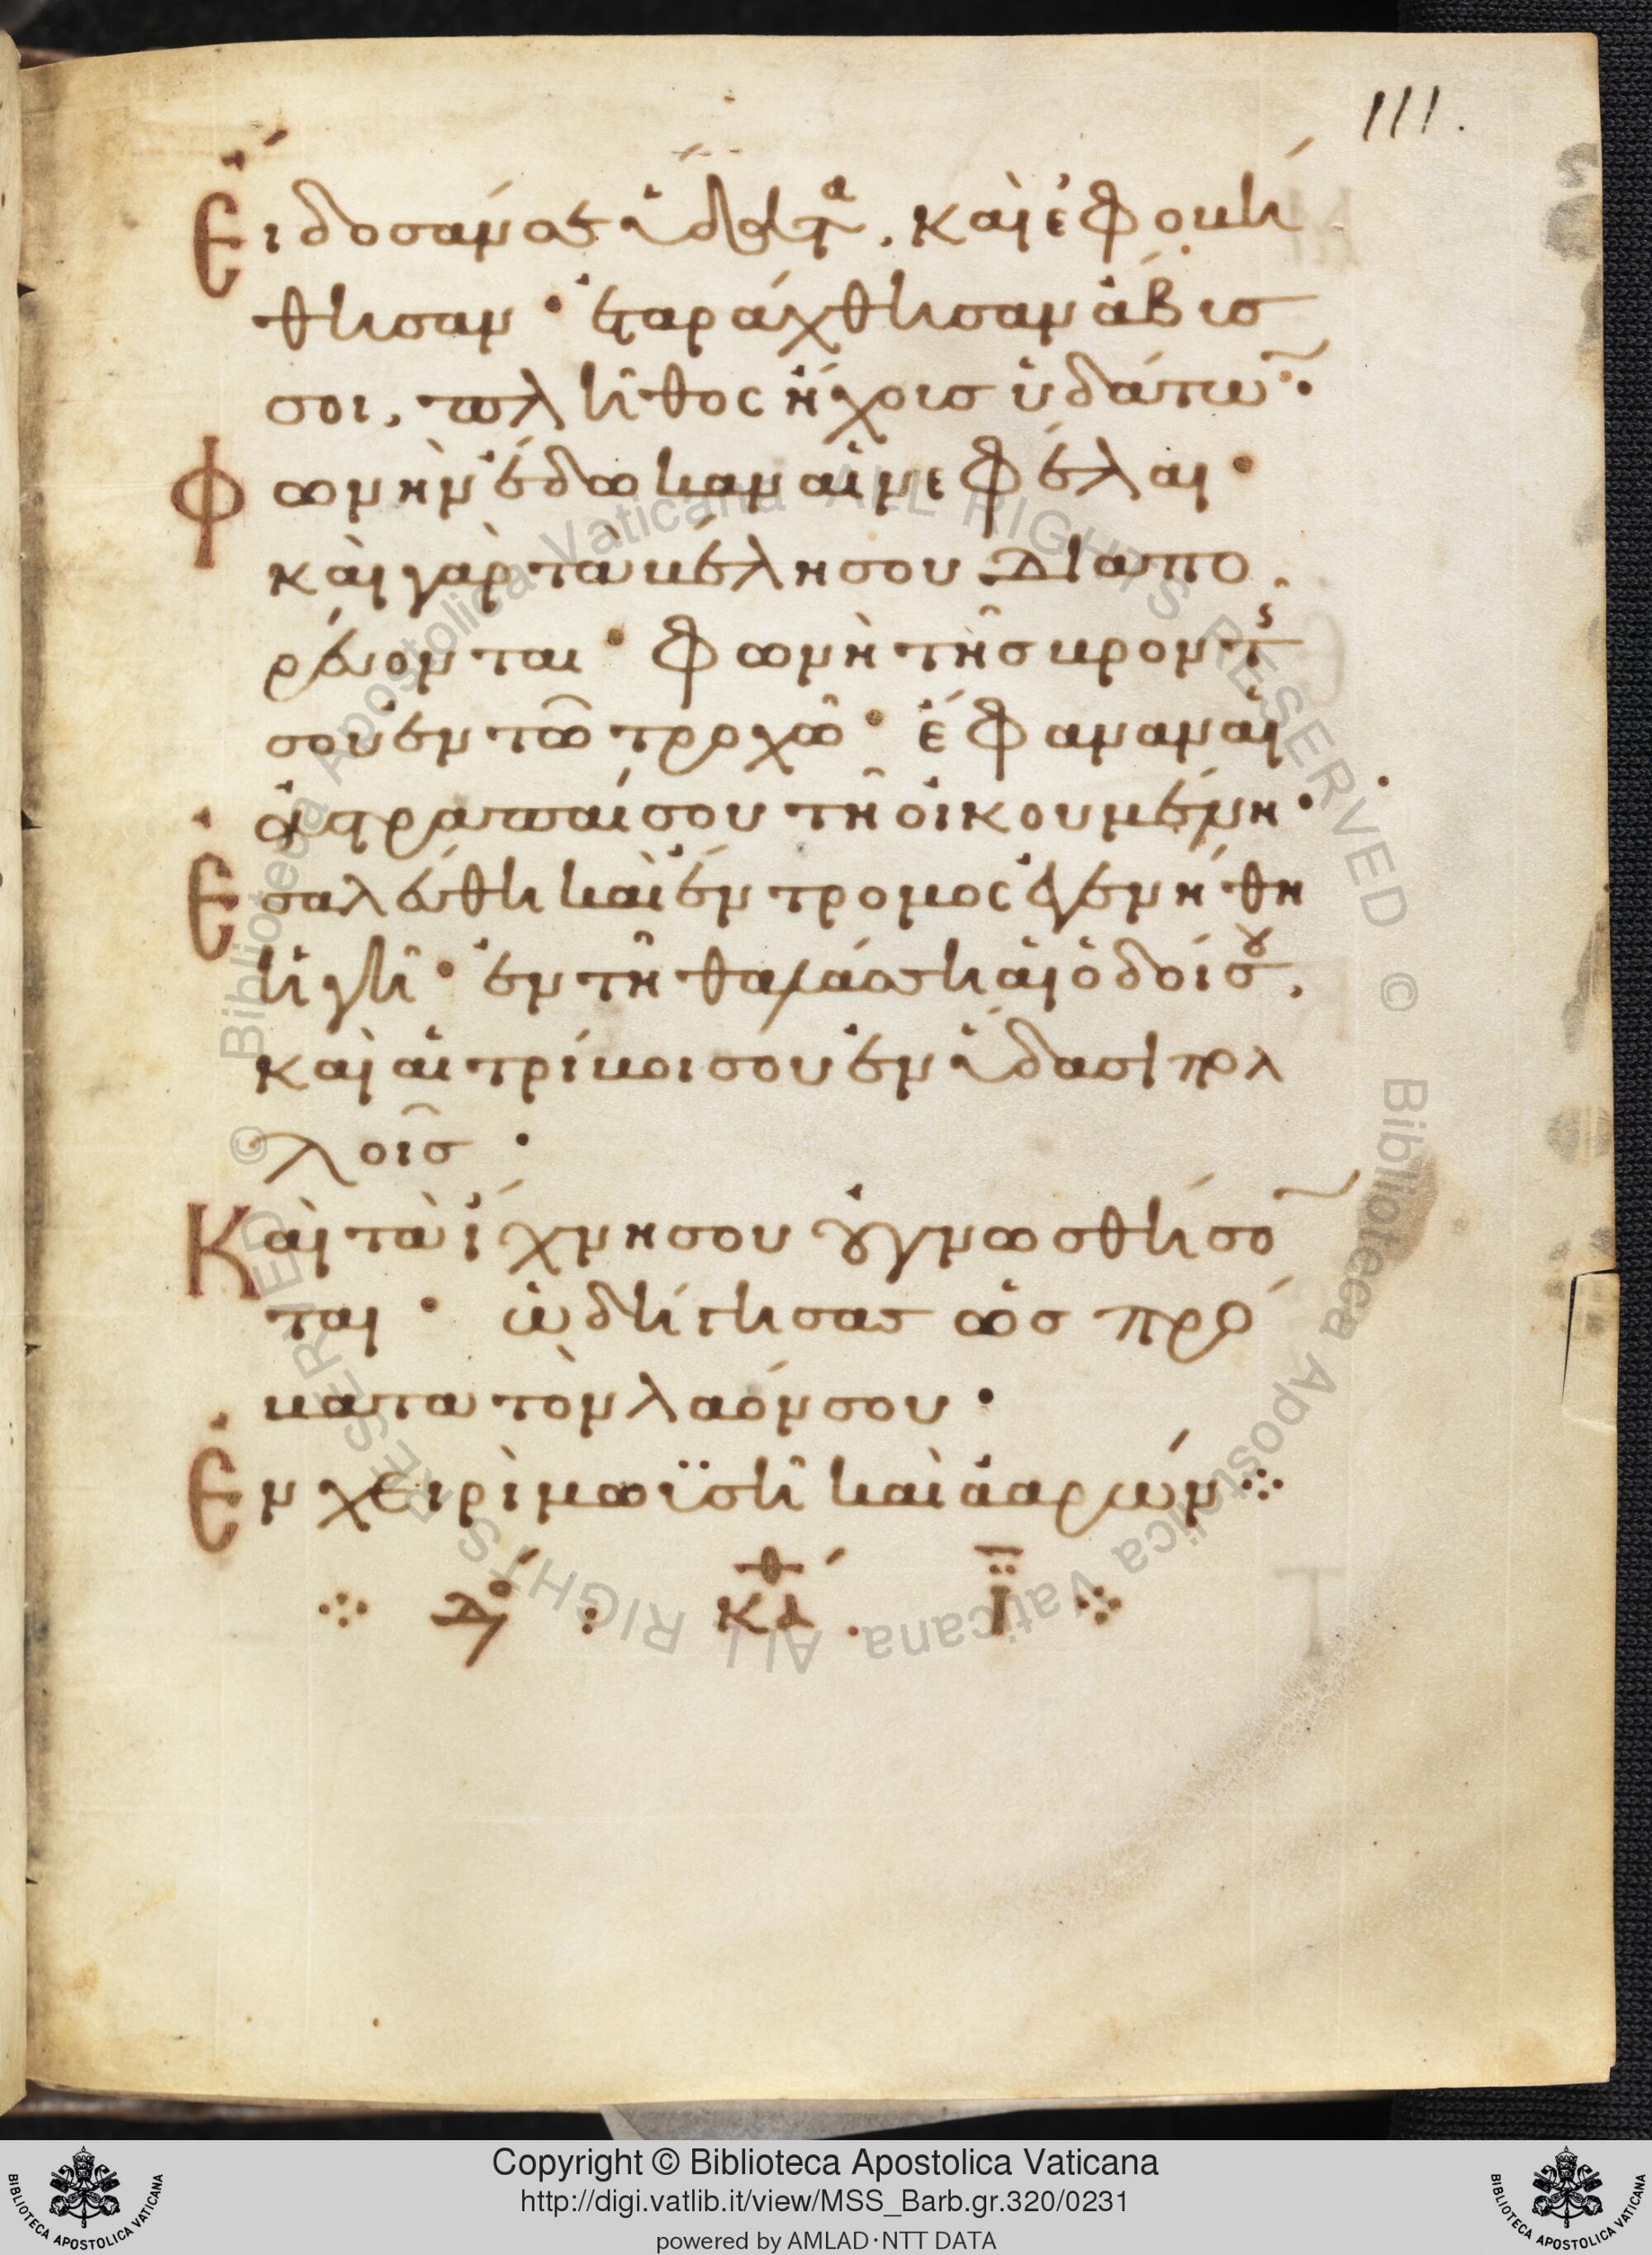 111.
Εἴδοσάν σε ὕδατα, καὶ ἐφοβή
θησαν· ἐταράχθησαν ἄβισ
σοι, πλῆθος ἤχοισ ὑδάτω̃·
Φωνὴν ἔδωκαν αἱ νεφέλαι·
καὶ γὰρ τὰ βέλη σου διαπο
ρεύονται· φωνὴ τῆσ βροντῆς
σου ἐν τῶ τροχῶ· ἔφαναν αἱ
ἀστραπαί σου τῆ οἰκουμένη·
Ἐσαλεύθη καὶ ἔντρομος ἐγενήθη
ἡ γῆ· ἐν τῆ θαλάσση αἱ ὁδοί σου,
καὶ αἱ τρίβοι σου ἐν ὕδασι πολ
λοῖσ·
Καὶ τὰ ἴχνη σου οὐ γνωσθήσο̃
ται· ὡδήγησασ ὡσ πρό
βατα τὸν λαόν σου·
Ἐν χειρὶ μωϊσῆ καὶ ἀαρών
Copyright © Biblioteca Apostolica Vaticana
http://digi.vatlib.it/view/MSS_Barb.gr.320/0231
powered by AMLAD·NTT DATA
BIBLIOTECA APOSTOLICA VATICANA
BIBLIOTECA APOSTOLICA VATICANA
© Biblioteca Apostolica Vaticana ALL RIGHTS RESERVED © Biblioteca Apostolica Vaticana ALL RIGHTS RESERVED